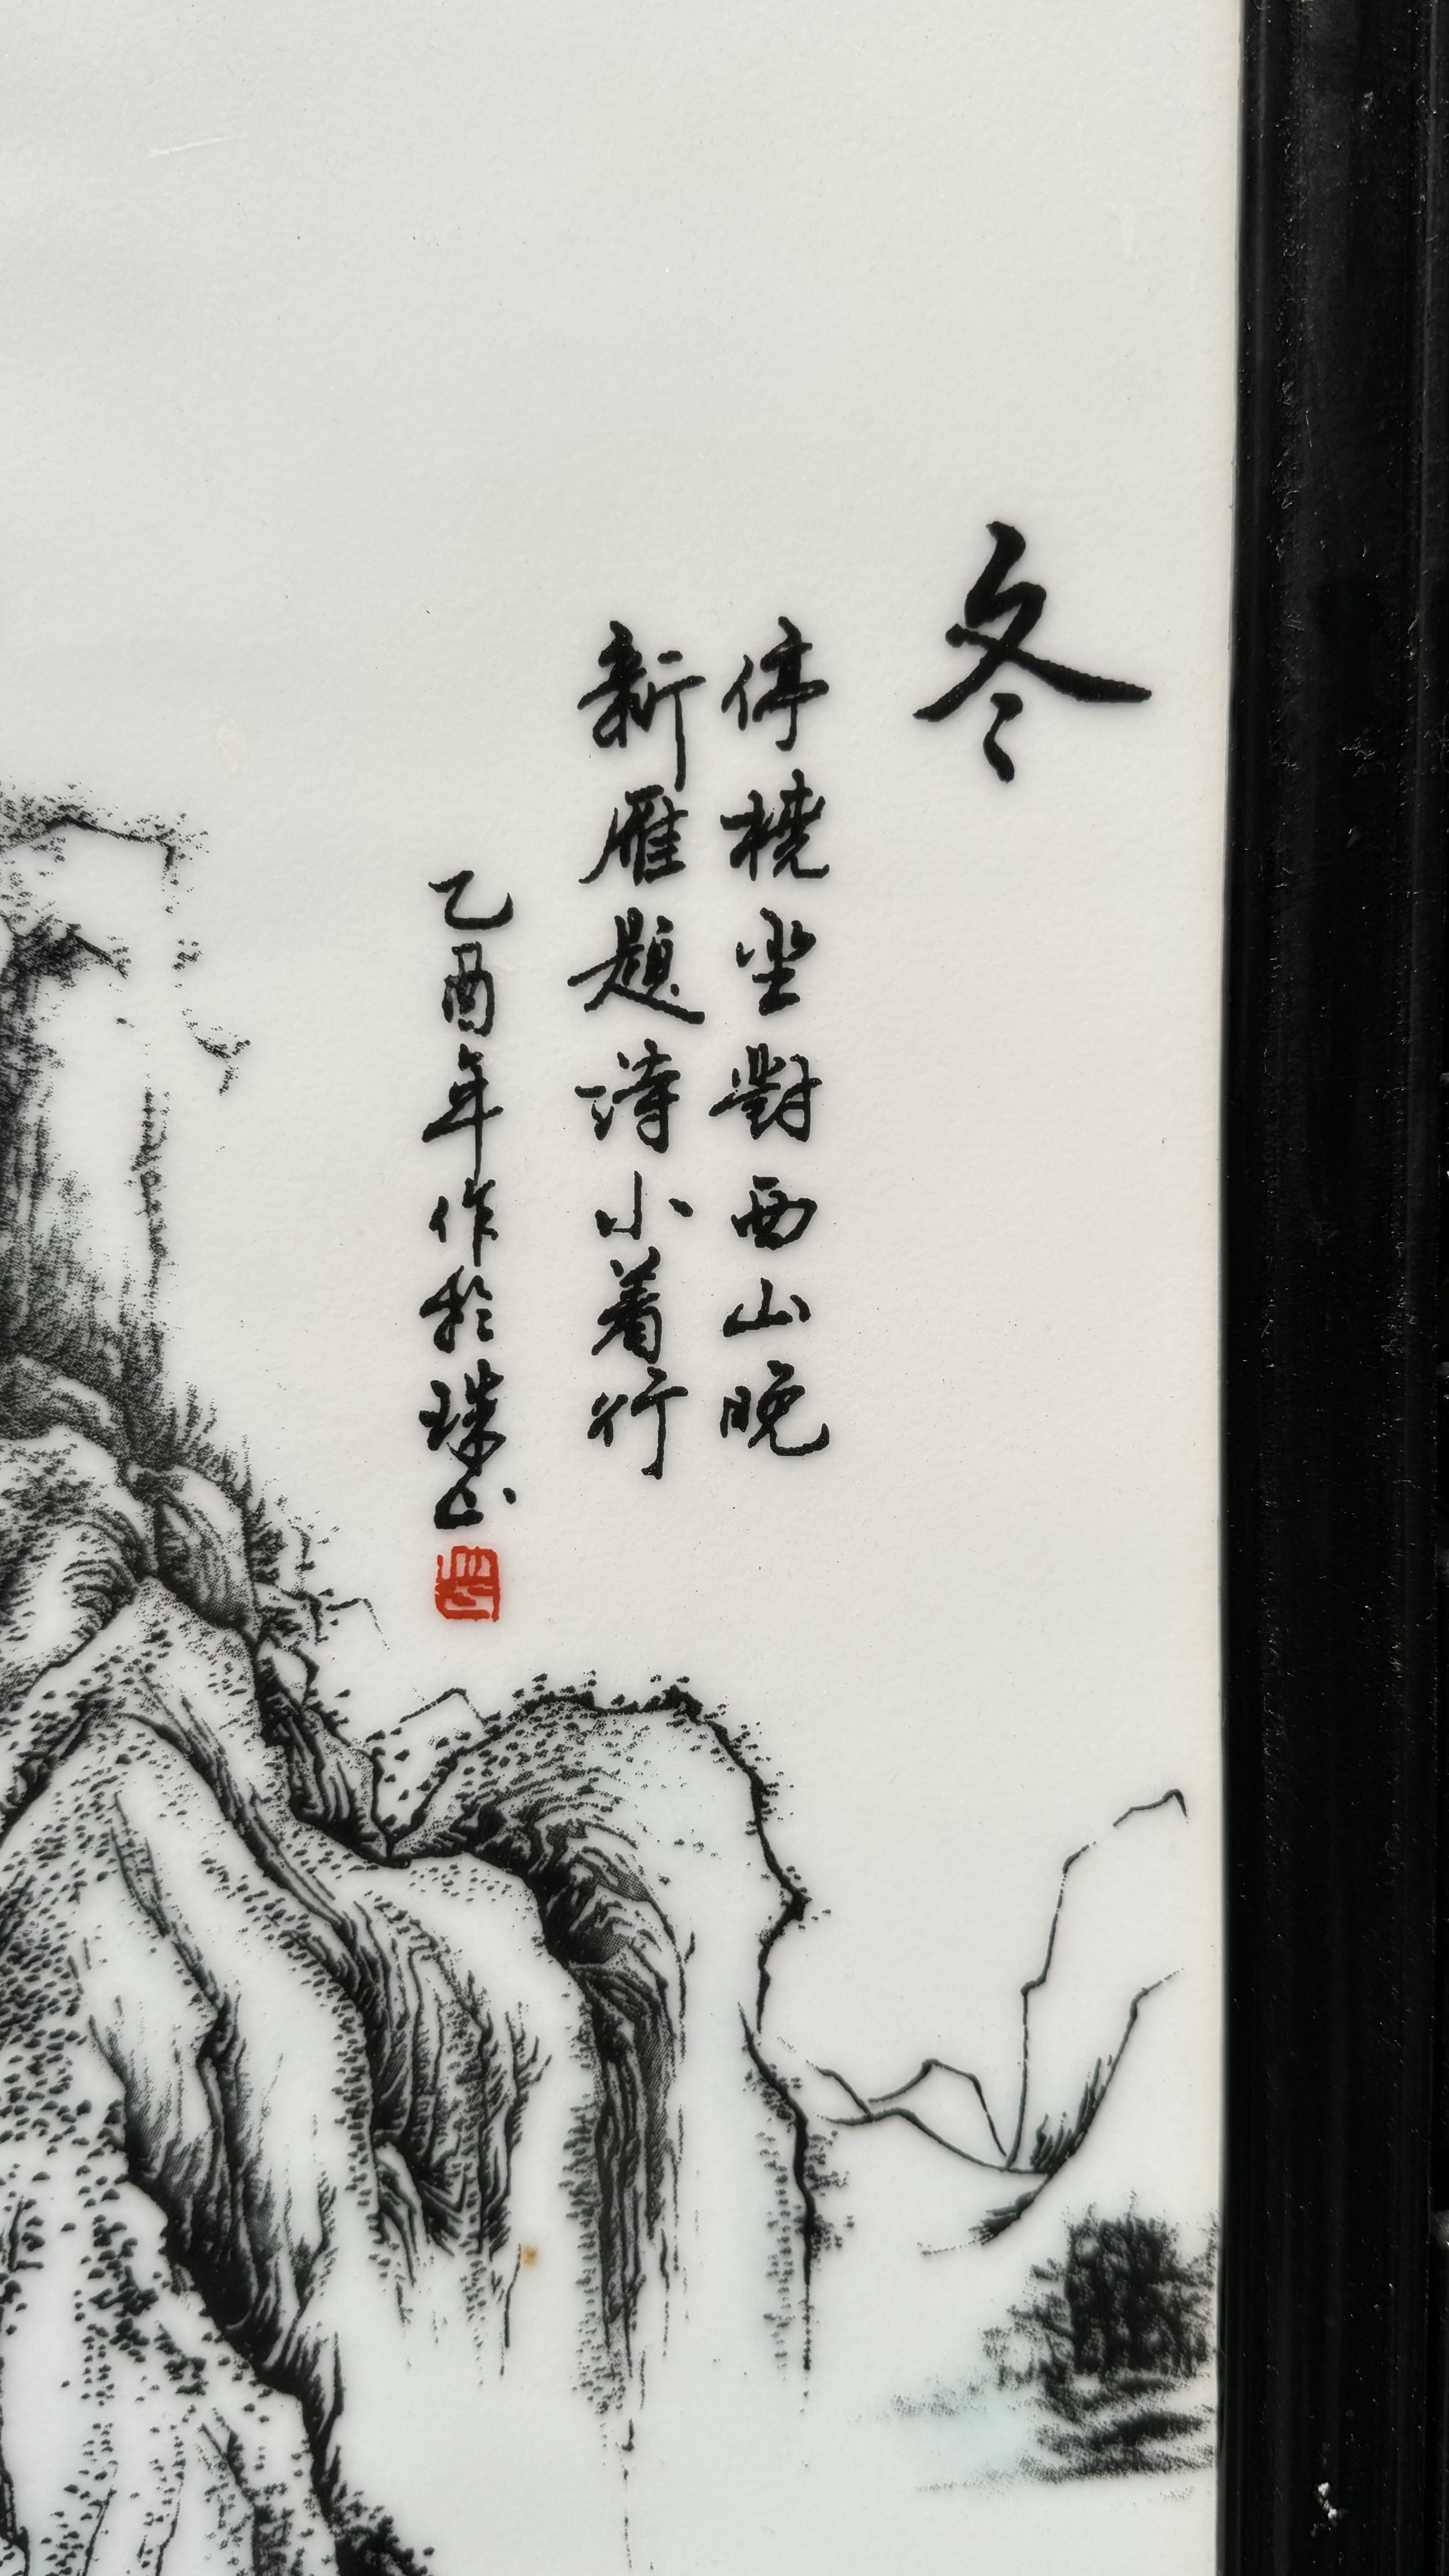 冬
停橈坐對西山晚
新雁題詩小着行
乙酉年作於珠山